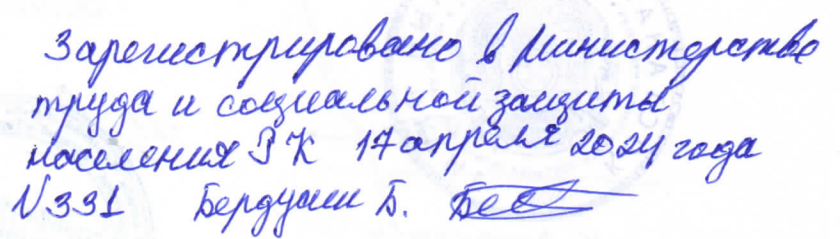 Зарегистрировано в Министерстве
труда и социальной защиты
населения РК 17 апреля 2024 года
N 331 Бердуали Б.